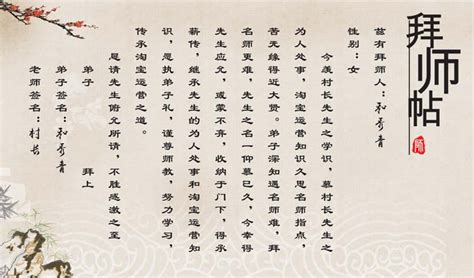 拜师帖
兹有拜师人：和秀青
性别：女
今羡村长先生之学识，慕村长先生之
为人处事，淘宝运营知识久思名师指点，
苦无缘得近大贤。弟子深知遇名师难，拜
名师更难，先生之名一仰慕已久，今幸得
先生应允，或蒙不弃，收纳于门下，得承
薪传，继承先生的为人处事和淘宝运营知
识，愿执弟子礼，谨尊师教，努力学习，
传承淘宝运营之道。
恳请先生俯允所请，不胜感激之至
弟子 拜上
弟子签名：和秀青
老师签名：村长